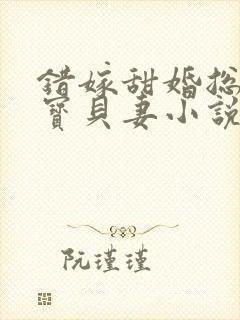 錯嫁甜婚總
寶貝妻小說
阮瑾瑾